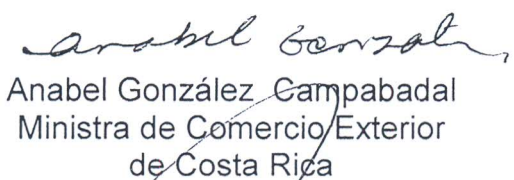 Anabel Gonzalez
Anabel González Campabadal
Ministra de Comercio Exterior
de Costa Rica